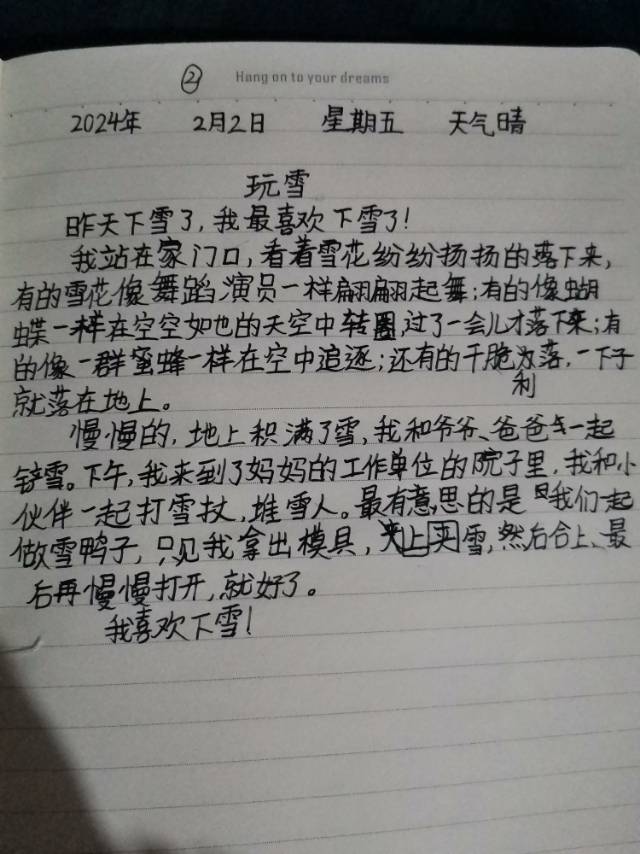 ② Hang on to your dreams
2024年 2月2日 星期五 天气晴
玩雪
昨天下雪了,我最喜欢下雪了!
我站在家门口,看着雪花纷纷扬扬的落下来,
有的雪花像舞蹈演员一样翩翩起舞;有的像蝴
蝶一样在空空如也的天空中转圈,过了一会儿才落下来;有
的像一群蜜蜂一样在空中追逐;还有的干脆落,一下子
利
就落在地上。
慢慢的,地上积满了雪,我和爷爷、爸爸一起
铲雪。下午,我来到了妈妈的工作单位的院子里,我和小
伙伴一起打雪扙,堆雪人。最有意思的是我们一起
做雪鸭子,只见我拿出模具,夹上雪,然后合上、最
后再慢慢打开,就好了。
我喜欢下雪!